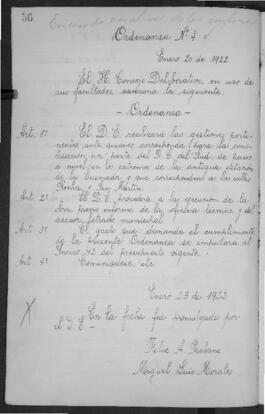 56
Ordenanza Nº 4
Enero 20 de 1922
El H. Concejo Deliberativo, en uso de
sus facultades, sanciona la siguiente
- Ordenanza -
Art. 1º El D. E. realizará las gestiones perti-
nentes ante quienes corresponda, para la cons-
trucción, por parte del F. C. del Sud, de pasos
a nivel, en los extremos de la antigua estación
de la Ensenada, y que corresponden a las calles
Rocha, y San Martin.
Art. 2º El D. E. procederá a la ejecución de la
obra, previo informe de la oficina técnica y del
asesor letrado municipal.
Art. 3º El gasto que demande el cumplimiento
de la presente Ordenanza se imputará al
Inciso 42 del presupuesto vigente.
Art. 4º Comuníquese, etc.
Enero 23 de 1922
X En la fecha fué promulgada por
el D. E. -
A.
Miguel Luis Morales